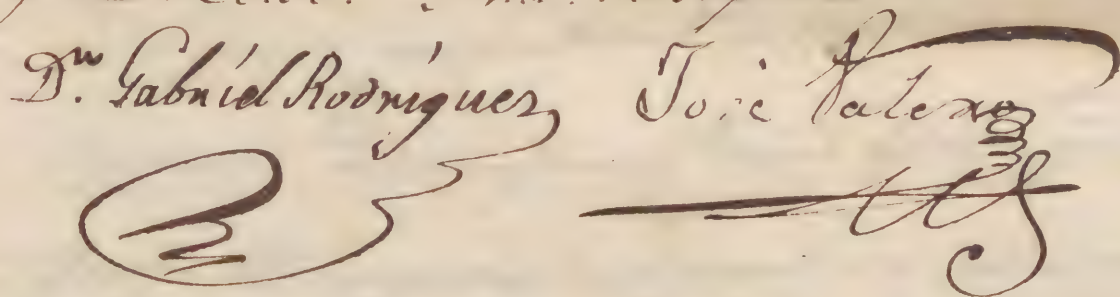 D.ⁿ Gabriel Rodriguez José Valero